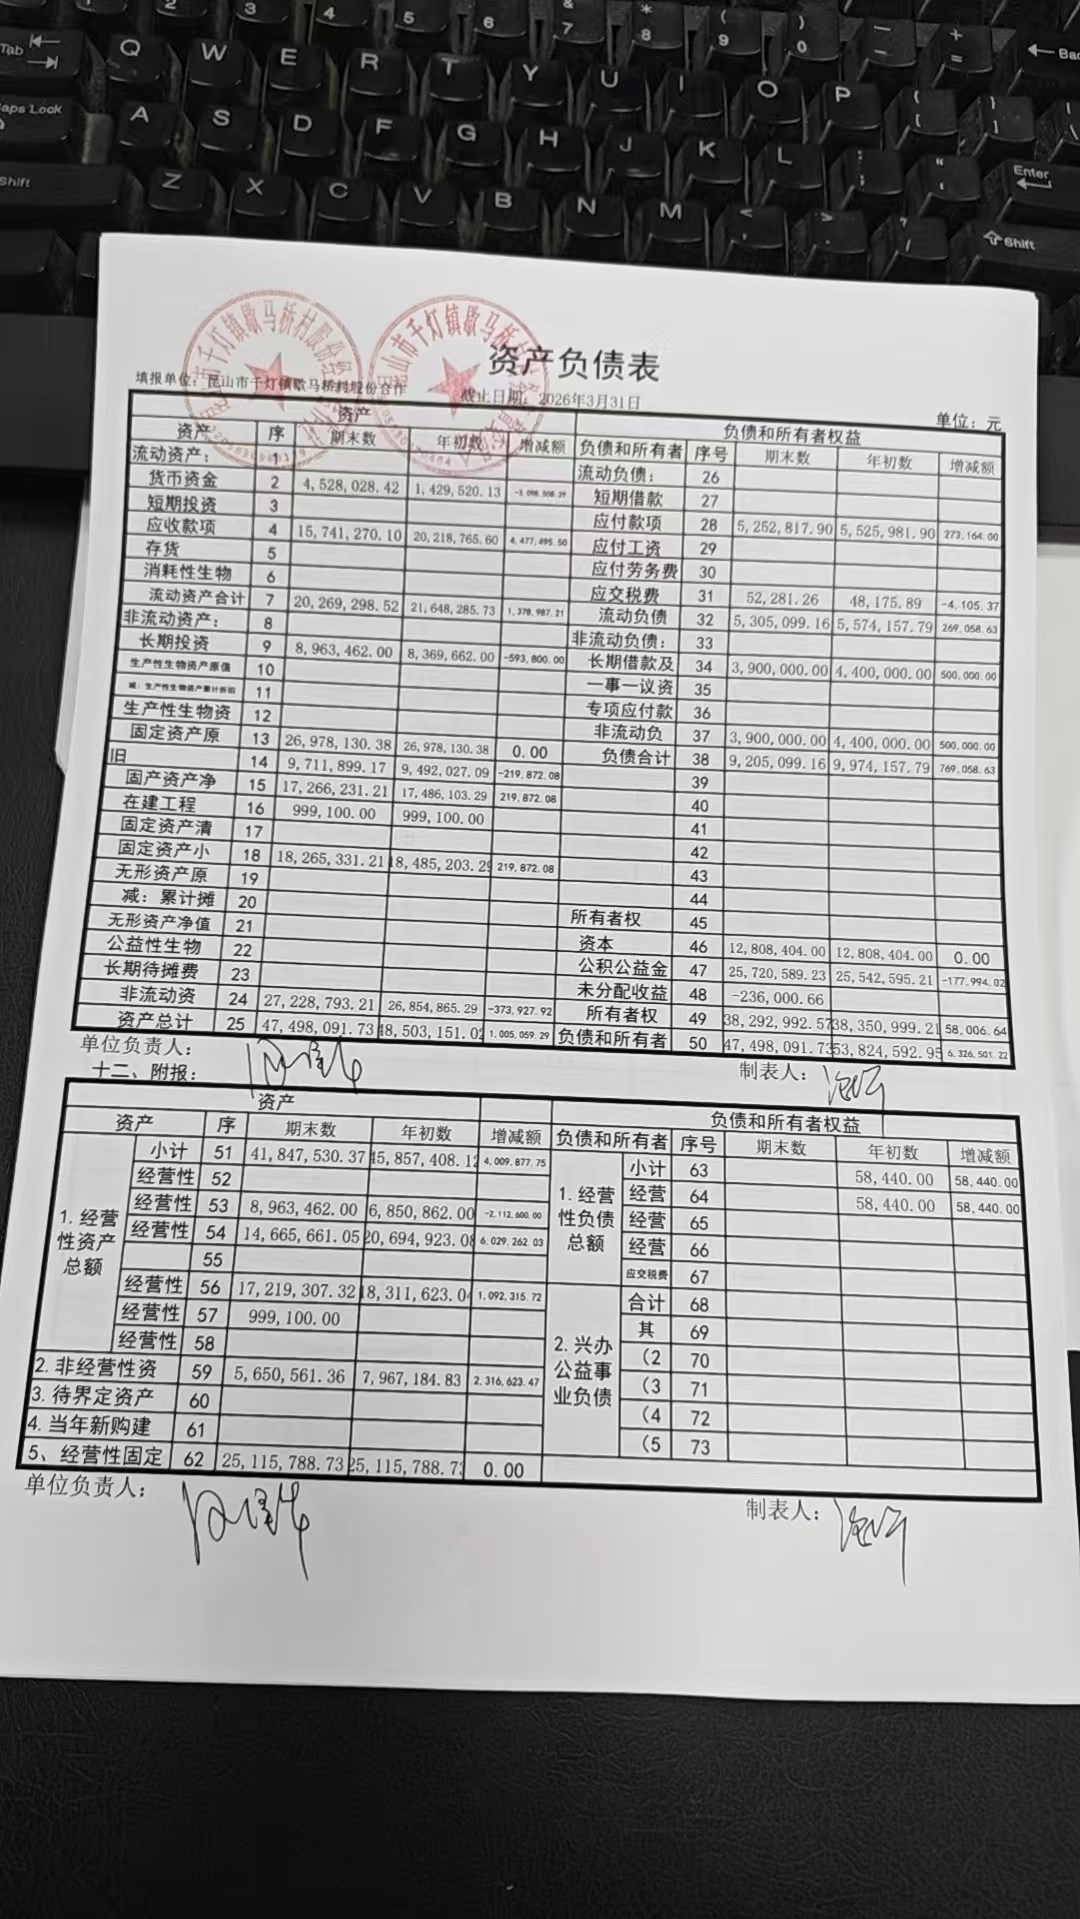 3 4 5 6 & 7 * 8 ( 9 ) 0 — - + = ← Bac
Tab Q W E R T Y U I O P { [ } ]
aps Lock A S D F G H J K L : ; " Enter
Shift Z X C V B N M < > ? / ⇧ Shift
资产负债表
填报单位: 昆山市千灯镇歇马桥村股份合作 截止日期: 2026年3月31日 单位: 元
资产 负债和所有者权益
资产 序 期末数 年初数 增减额 负债和所有者 序号 期末数 年初数 增减额
流动资产: 1 流动负债: 26
货币资金 2 4,528,028.42 1,429,520.13 短期借款 27
短期投资 3 应付款项 28 5,252,817.90 5,525,981.90 273,164.00
应收款项 4 15,741,270.10 20,218,765.60 4,477,495.50 应付工资 29
存货 5 应付劳务费 30
消耗性生物 6 应交税费 31 52,281.26 48,175.89 -4,105.37
流动资产合计 7 20,269,298.52 21,648,285.73 1,378,987.21 流动负债 32 5,305,099.16 5,574,157.79 269,058.63
非流动资产: 8 非流动负债: 33
长期投资 9 8,963,462.00 8,369,662.00 -593,800.00 长期借款及 34 3,900,000.00 4,400,000.00 500,000.00
生产性生物资产原值 10 一事一议资 35
减: 生产性生物资产累计折旧 11 专项应付款 36
生产性生物资 12 非流动负 37 3,900,000.00 4,400,000.00 500,000.00
固定资产原 13 26,978,130.38 26,978,130.38 0.00 负债合计 38 9,205,099.16 9,974,157.79 769,058.63
旧 14 9,711,899.17 9,492,027.09 -219,872.08 39
固产资产净 15 17,266,231.21 17,486,103.29 219,872.08 40
在建工程 16 999,100.00 999,100.00 41
固定资产清 17 42
固定资产小 18 18,265,331.21 18,485,203.29 219,872.08 43
无形资产原 19 44
减: 累计摊 20 所有者权 45
无形资产净值 21 资本 46 12,808,404.00 12,808,404.00 0.00
公益性生物 22 公积公益金 47 25,720,589.23 25,542,595.21 -177,994.02
长期待摊费 23 未分配收益 48 -236,000.66
非流动资 24 27,228,793.21 26,854,865.29 -373,927.92 所有者权 49 38,292,992.57 38,350,999.21 58,006.64
资产总计 25 47,498,091.73 48,503,151.02 1,005,059.29 负债和所有者 50 47,498,091.73 53,824,592.95 6,326,501.22
单位负责人: 制表人:
十二、附报:
资产 负债和所有者权益
资产 序 期末数 年初数 增减额 负债和所有者 序号 期末数 年初数 增减额
1. 经营性资产总额 小计 51 41,847,530.37 45,857,408.12 4,009,877.75 1. 经营性负债总额 小计 63 58,440.00 58,440.00
经营性 52 经营 64 58,440.00 58,440.00
经营性 53 8,963,462.00 6,850,862.00 -2,112,600.00 经营 65
经营性 54 14,665,661.05 20,694,923.08 6,029,262.03 经营 66
55 应交税费 67
经营性 56 17,219,307.32 18,311,623.04 1,092,315.72 2. 兴办公益事业负债 合计 68
经营性 57 999,100.00 其 69
经营性 58 (2 70
2. 非经营性资 59 5,650,561.36 7,967,184.83 2,316,623.47 (3 71
3. 待界定资产 60 (4 72
4. 当年新购建 61 (5 73
5、经营性固定 62 25,115,788.73 25,115,788.73 0.00
单位负责人: 制表人: